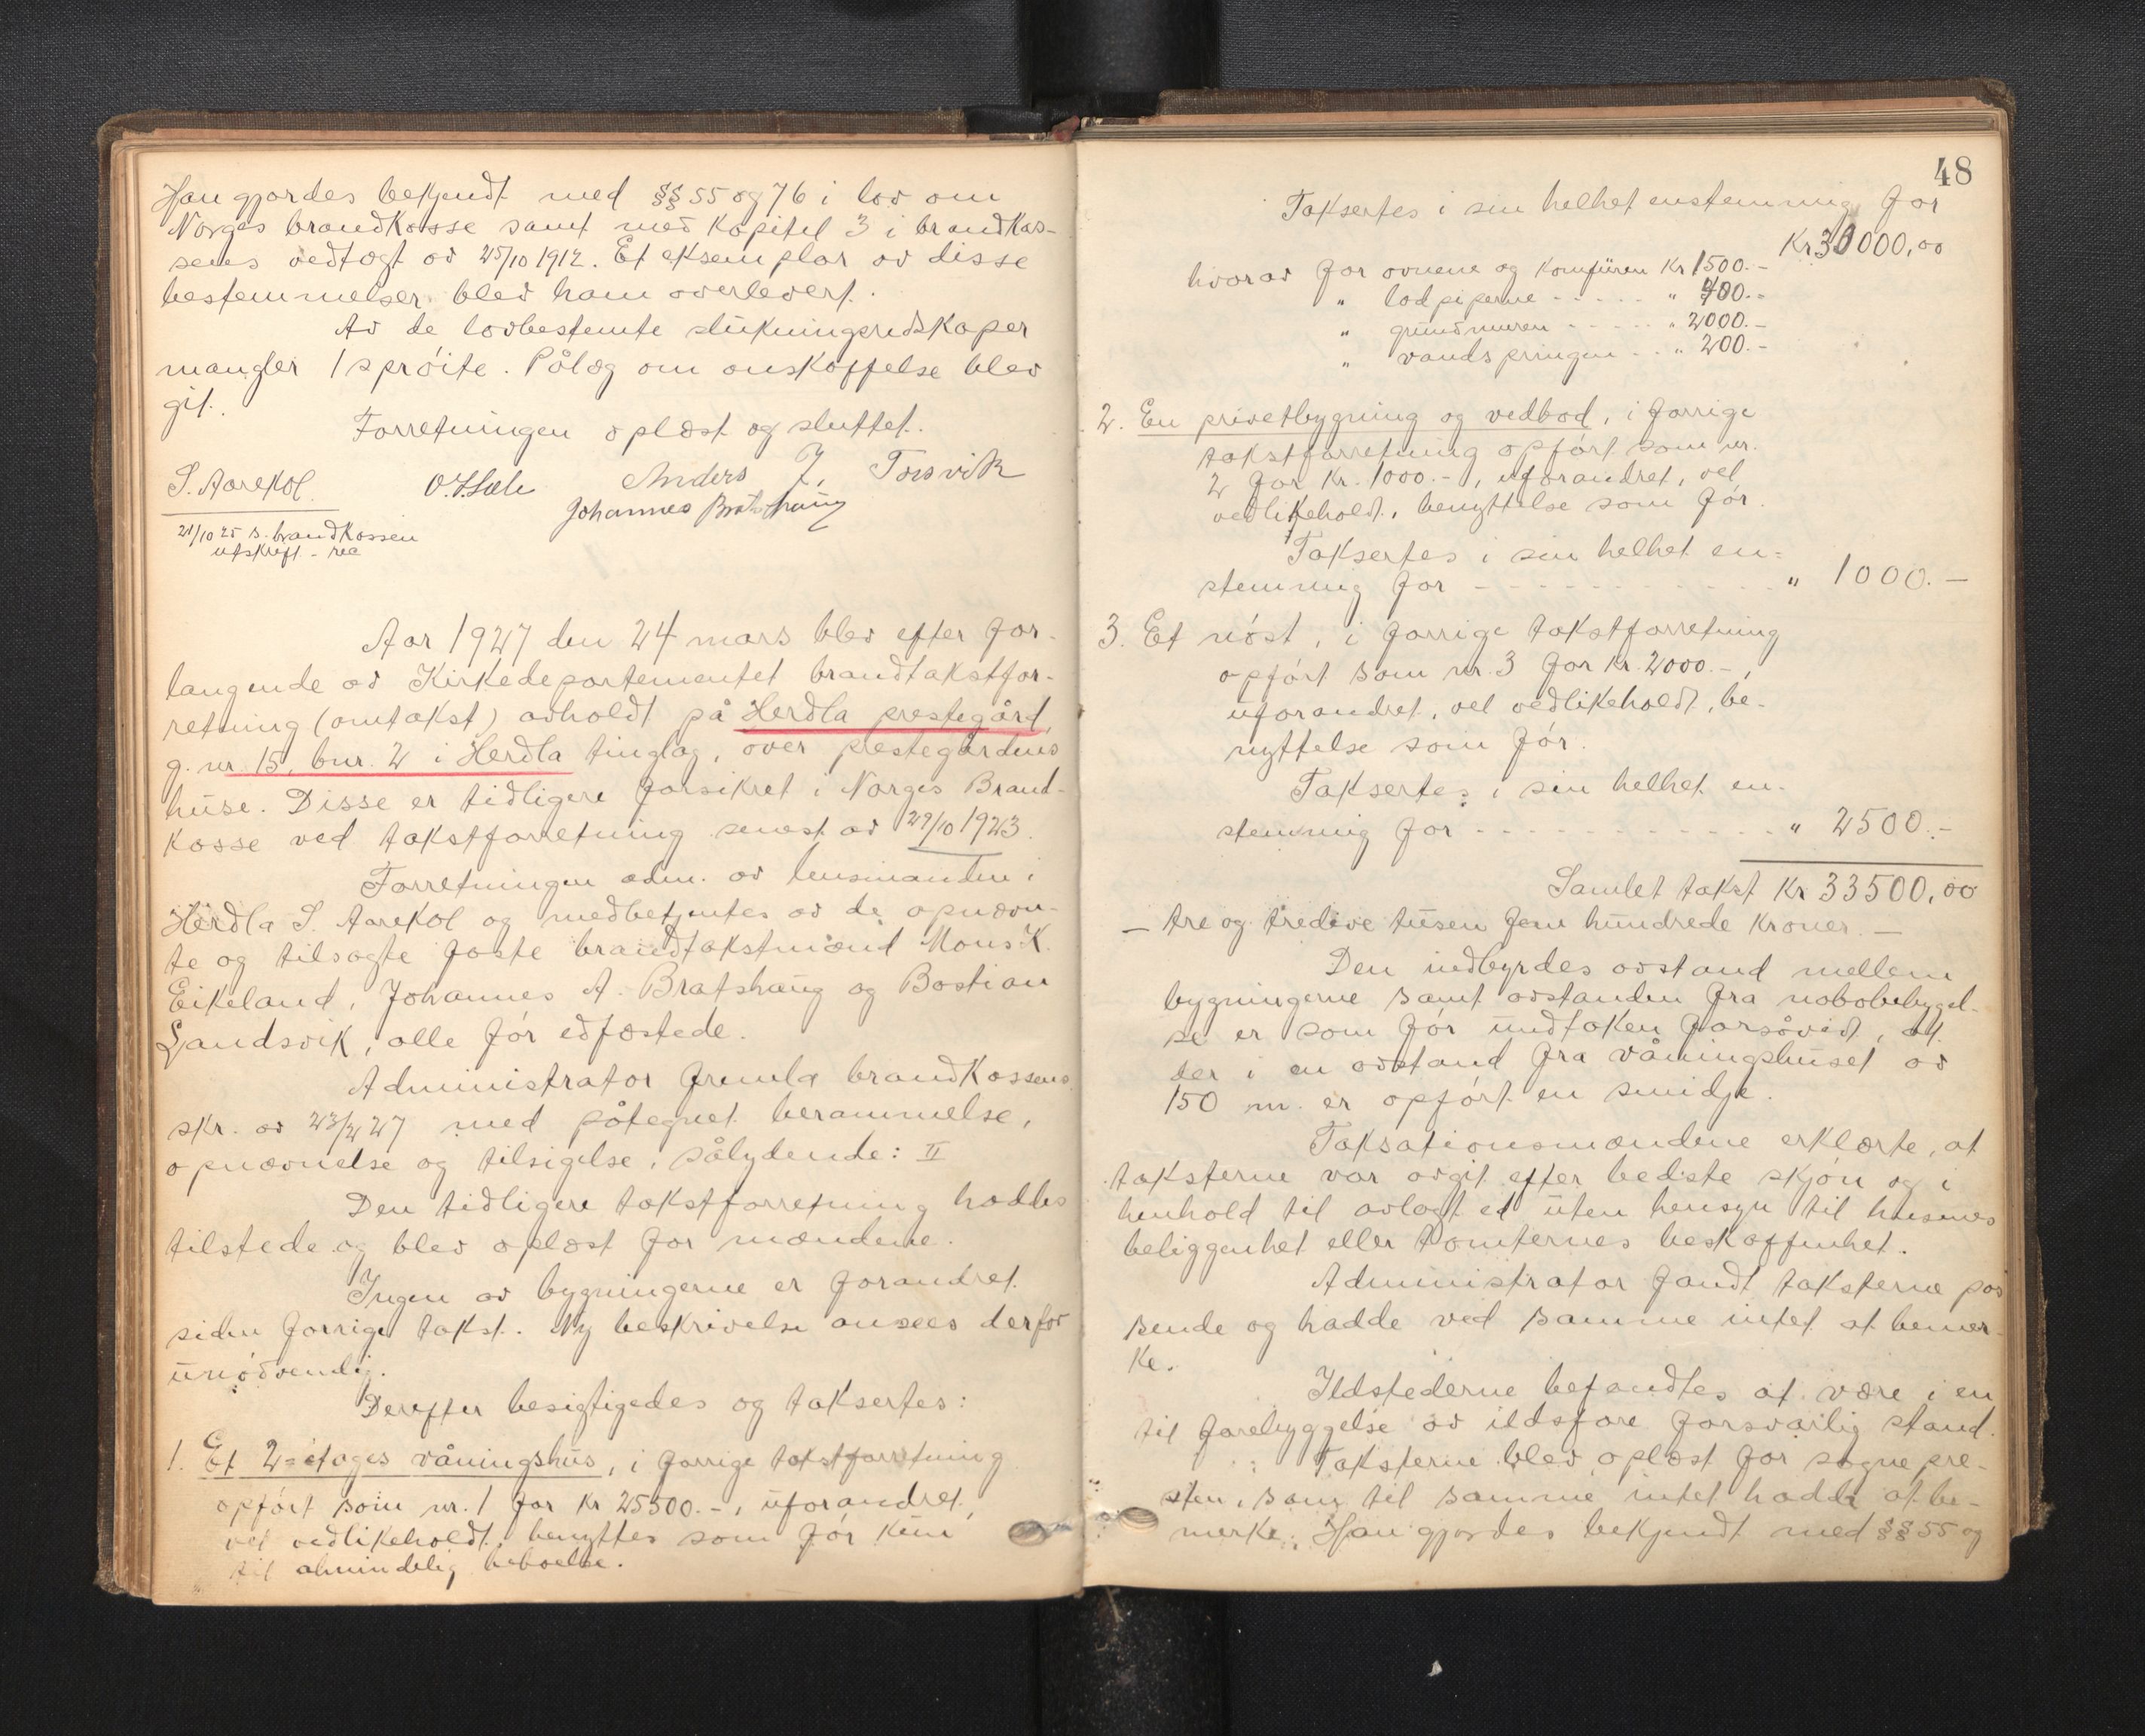 Han gjordes bekjendt med §§ 55 og 76 i lov om
Norges brandkasse samt med kapitel 3 i brandkas-
sens vedtægt av 25/10 1912. Et eksemplar av disse
bestemmelser blev ham overlevert.
Av de lovbestemte slukningsredskaper
mangler 1 sprøite. Pålæg om anskaffelse blev
git.
Forretningen oplæst og sluttet.
S. Aarekol. Anders J. Torsvik
Johannes Bratshaug
21/10 25 s. brandkassen
utskrift - rec
Aar 1927 den 24 mars blev efter for-
langende av Kirkedepartementet brandtakstfor-
retning (omtakst) avholdt på Herdla prestegård,
g. nr. 15, bnr. 2 i Herdla tinglag, over prestegårdens
huse. Disse er tidligere forsikret i Norges Brand-
kasse ved takstforretning senest av 29/10 1923.
Forretningen adm. av lensmanden i
Herdla S. Aarekol og medbetjentes av de opnævn-
te og tilsagte faste brandtakstmænd Mons K.
Eikeland, Johannes A. Bratshaug og Bastian
Landsvik, alle før edfæstede.
Administrator fremla brandkassens
skr. av 23/2 27 med påtegnet berammelse,
opnævnelse og tilsigelse, sålydende: II
Den tidligere takstforretning haddes
tilstede og blev oplæst for mændene.
Ingen av bygningerne er forandret
siden forrige takst. Ny beskrivelse ansees derfor
unødvendig.
Derefter besigtigedes og taksertes:
1. Et 2-etages våningshus, i forrige takstforretning
opført som nr. 1 for kr 25500.-, uforandret,
vel vedlikeholdt, benyttes som før kun
til almindelig beboelse.
48
Taksertes i sin helhet enstemmig for
Kr 30000,00
hvorav for ovnene og komfüren Kr 1500.-
" lodpiperne - - - - - " 400.-
" grundmuren - - - - - " 2000.-
" vandspringen - - " 200.-
2. En privetbygning og vedbod, i forrige
takstforretning opført som nr.
2 for kr. 1000.-, uforandret, vel
vedlikeholdt, benyttelse som før.
Taksertes i sin helhet en-
stemmig for - - - - - - - - - " 1000.-
3. Et nøst, i forrige takstforretning
opført som nr. 3 for kr. 2000.-,
uforandret, vel vedlikeholdt, be-
nyttelse som før.
Taksertes i sin helhet en-
stemmig for - - - - - - - - - " 2500.-
Samlet takst Kr 33500,00
- tre og tredive tusen fem hundrede kroner. -
Den indbyrdes avstand mellem
bygningerne samt avstanden fra nabobebygel-
se er som før undtaken forsåvidt, at
der i en avstand fra våningshuset av
150 m. er opført en smidje.
Taksationsmændene erklærte, at
taksterne var avgit efter bedste skjøn og i
henhold til avlagt ed uten hensyn til husenes
beliggenhet eller tomternes beskaffenhet.
Administrator fandt taksterne pas
sende og hadde ved samme intet at bemer-
ke.
Ildstederne befandtes at være i en
til forebyggelse av ildsfare forsvarlig stand.
Taksterne blev oplæst for sognepre-
sten, som til samme intet hadde at be-
merke. Han gjordes bekjendt med §§ 55 og